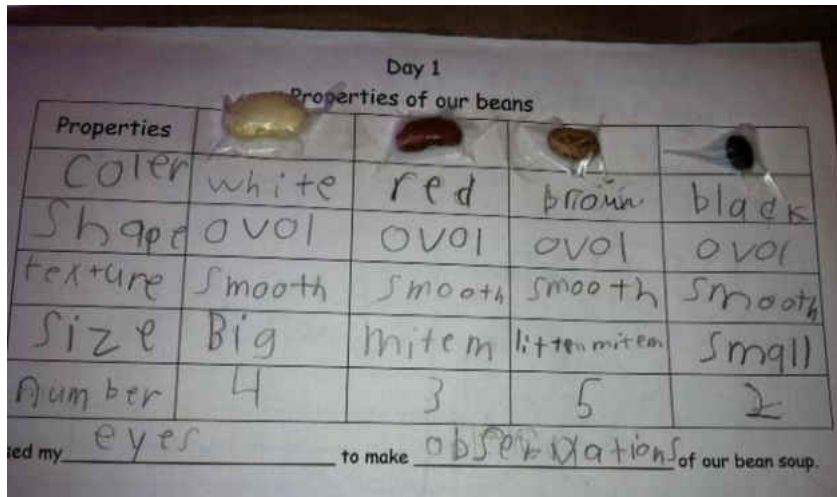 Day 1
Properties of our beans
Properties
Coler white red broun black
Shape ovol ovol ovol ovol
texture smooth smooth smooth smooth
Size Big mitem litten mitem small
number 4 3 5 2
ed my eyes to make observations of our bean soup.